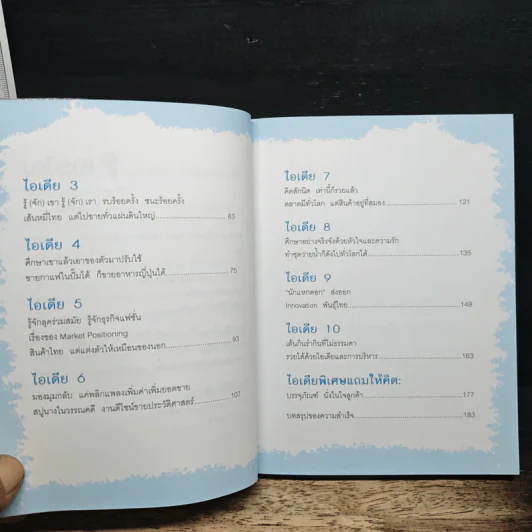 ไอเดีย 3
รู้ (จัก) เขา รู้ (จัก) เรา รบร้อยครั้ง ชนะร้อยครั้ง
เส้นหมี่ไทย แต่ไปขายทั่วแผ่นดินใหญ่ 63
ไอเดีย 4
ศึกษาเขาแล้วเอาของตัวมาปรับใช้
ขายกาแฟในปั๊มได้ ก็ขายอาหารญี่ปุ่นได้ 75
ไอเดีย 5
รู้จักลุคร่วมสมัย รู้จักธุรกิจแฟชั่น
เรื่องของ Market Positioning
สินค้าไทย แต่แต่งตัวให้เหมือนของนอก 93
ไอเดีย 6
มองมุมกลับ แต่พลิกแพลงเพิ่มค่าเพิ่มยอดขาย
สบู่นางในวรรณคดี งานดีไซน์ขายประวัติศาสตร์ 107
ไอเดีย 7
คิดสักนิด เท่านี้ก็รวยแล้ว
ตลาดมีทั่วโลก แต่สินค้าอยู่ที่สมอง 121
ไอเดีย 8
ศึกษาอย่างจริงจังด้วยหัวใจและความรัก
ทำชุดว่ายน้ำก็ดังไปทั่วโลกได้ 135
ไอเดีย 9
"นักแหกคอก" ส่งออก
Innovation พันธุ์ไทย 149
ไอเดีย 10
เดินกินรำกินที่ไม่ธรรมดา
รวยได้ด้วยไอเดียและการบริหาร 163
ไอเดียพิเศษแถมให้คิด:
บรรจุภัณฑ์ นั่งในใจลูกค้า 177
บทสรุปของความสำเร็จ 183